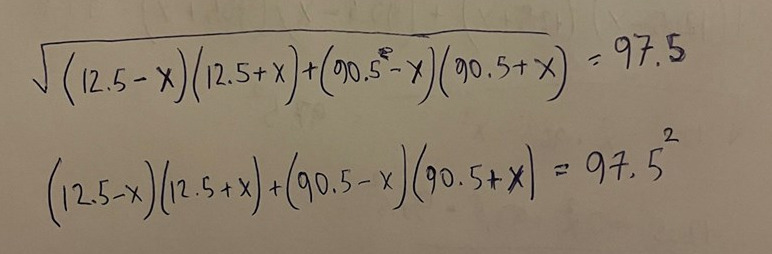 √(12.5-x)(12.5+x)+(90.5-x)(90.5+x) = 97.5
(12.5-x)(12.5+x)+(90.5-x)(90.5+x) = 97.5²